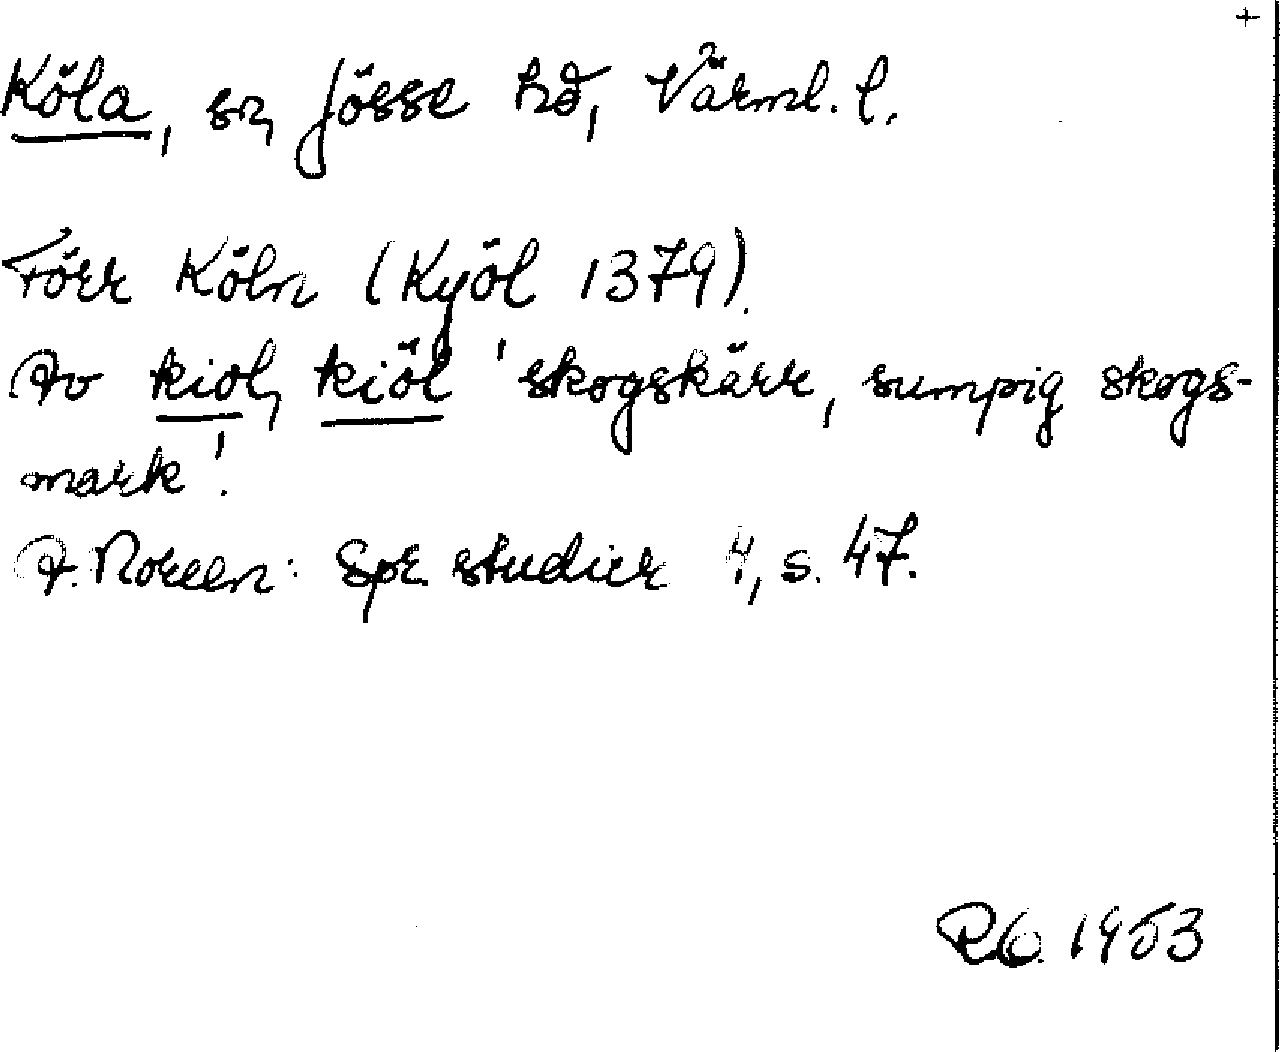 +
Köla, sn, Jösse hd, Värml. l.
Förr Köln (Kyöl 1379).
Av kiol, kiöl 'skogskärr, sumpig skogs-
mark'.
A. Noreen: Spr. studier 4, s. 47.
1953